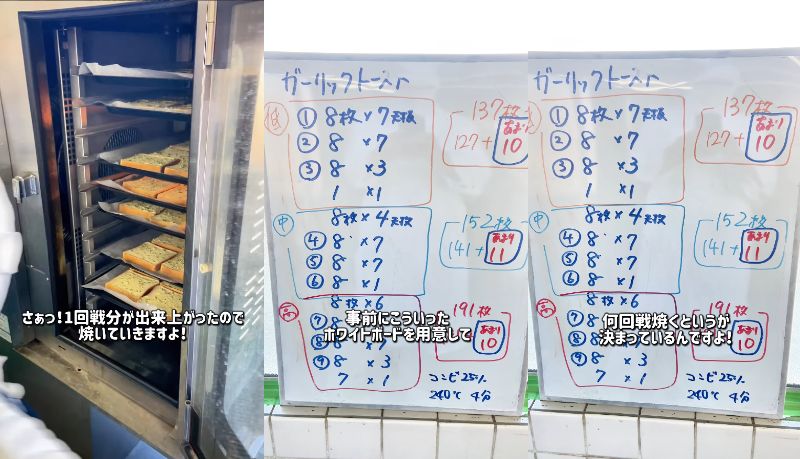 さぁっ!1回戦分が出来上がったので
焼いていきますよ!
ガーリックトースト
低
① 8枚×7天板
② 8 ×7
③ 8 ×3
1 ×1
137枚
127+
あまり
10
中
8枚×4天板
④ 8 ×7
⑤ 8 ×7
⑥ 8 ×1
152枚
141+
あまり
11
高
8枚×6
⑦ 8
⑧ 8
⑨ 8 × 3
7 × 1
191枚
あまり
10
コンビ25%
240℃ 4分
事前にこういった
ホワイトボードを用意して
ガーリックトースト
① 8枚×7天板
② 8 ×7
③ 8 ×3
1 ×1
137枚
127+
あまり
10
中
8枚×4天板
④ 8 ×7
⑤ 8 ×7
⑥ 8 ×1
152枚
141+
あまり
11
高
8枚×6
⑦ 8
⑧ 8
⑨ 8 × 3
7 × 1
191枚
あまり
10
コンビ25%
240℃ 4分
何回戦焼くというが
決まっているんですよ!